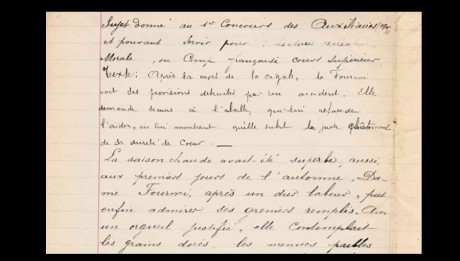 Sujet donné au 1er Concours des Auxiliaires
et pouvant servir pour : lecture
Morale, ou Comp. française cours supérieur
Texte : Après la mort de la cigale, la Fourmi
voit ses provisions détruites par un accident. Elle
demande secours à l'abeille, qui lui refuse de
l'aider, en lui montrant qu'elle subit la juste châtiment
de sa dureté de Coeur —
La saison chaude avait été superbe, aussi
aux premiers jours de l'automne, Da-
me Fourmi, après un dur labeur, put
enfin admirer ses greniers remplis. Avec
un orgueil justifié, elle contemplait
les grains dorés, les menues pailles